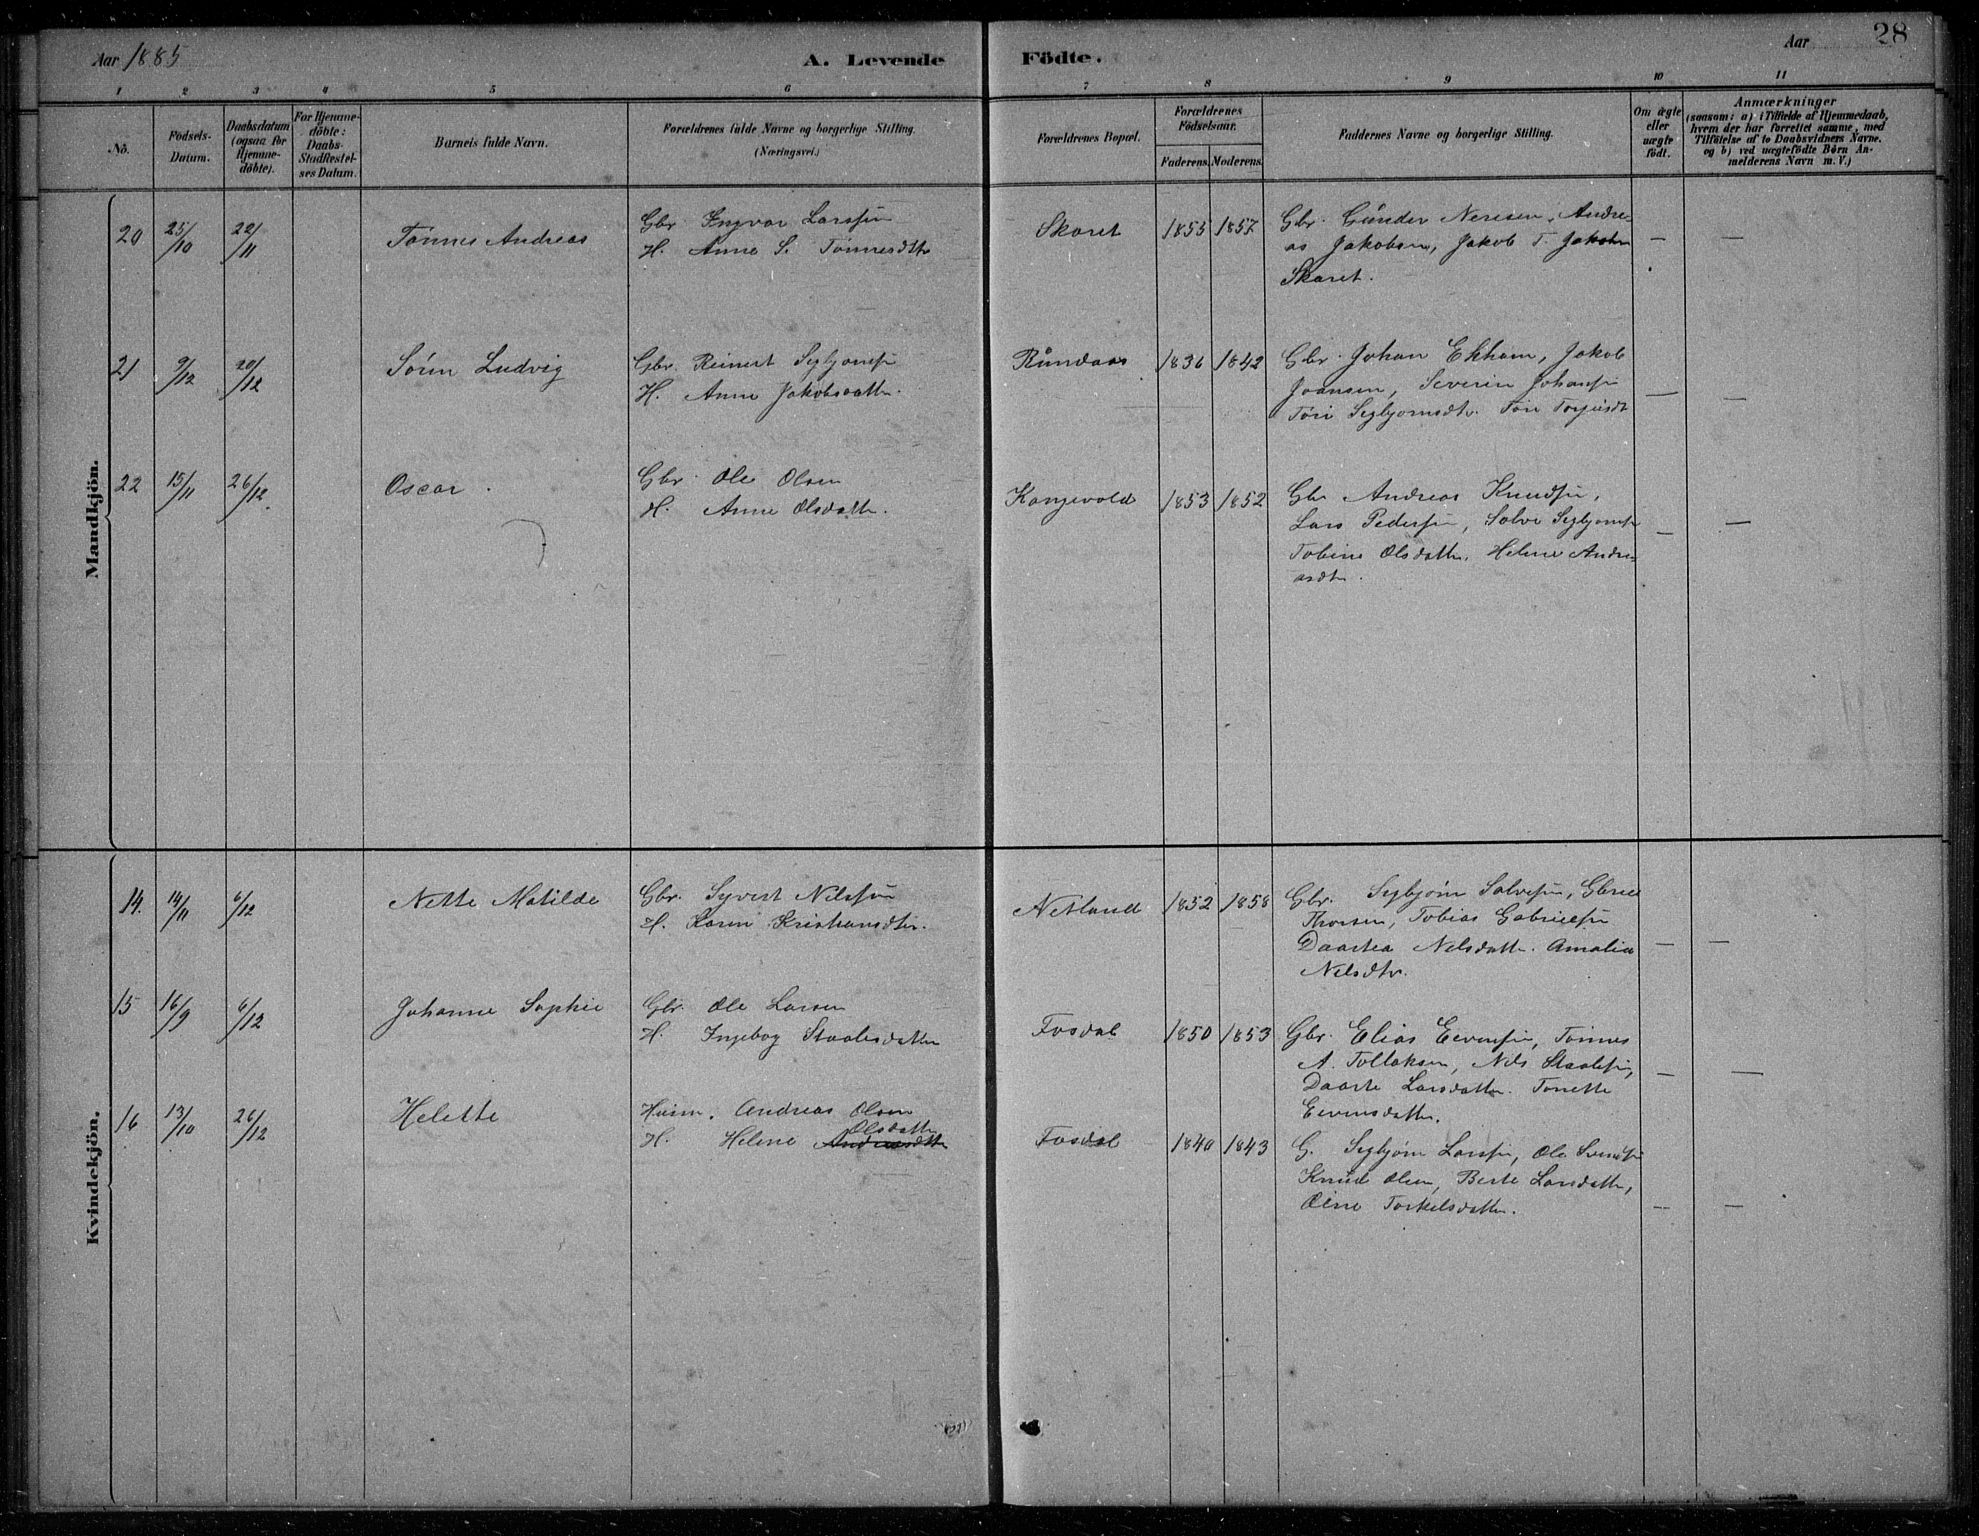 Aar 1885
A. Levende Födte.
Aar
28
1 2 3 4 5 6 7 8 9 10 11
No.
Födsels-
Datum.
Daabsdatum
(ogsaa for
Hjemme-
döbte).
For Hjemme-
döbte:
Daabs-
Stadfæstel-
ses Datum.
Barnets fulde Navn.
Forældrenes fulde Navne og borgerlige Stilling.
(Næringsvei.)
Forældrenes Bopæl.
Forældrenes
Födselsaar.
Faderens. Moderens.
Faddernes Navne og borgerlige Stilling.
Om ægte
eller
uægte
födt.
Anmærkninger
(saasom: a) i Tilfælde af Hjemmedaab,
hvem der har forrettet samme, med
Tilföielse af to Daabsvidners Navne,
og b) ved uægtefödte Börn An-
melderens Navn m. V.)
Mandkjön.
20 25/10 22/11 Tønnes Andreas
Gbr. Ingvar Larssen
H. Anne S. Tønnesdtr
Skaret 1855 1857
Gbr. Gunder Neresen, Andre-
as Jakobsen, Jakob T. Jakobsen
Skaret.
— —
21 9/12 20/12 Sørin Ludvig
Gbr. Reinert Segbjørnsen
H. Anne Jakobsdatter.
Rundaas 1836 1842
Gbr. Johan Ekham, Jakob
Joansen, Severin Johansen
Tøri Segbjørnsdtr. Tøri Torjusdt
— —
22 15/11 26/12. Oscar.
Gbr. Ole Olsen
H. Anne Olsdatter.
Kongevold 1853 1852
Gbr Andreas Knudsen,
Lars Pedersen, Salve Segbjørnsen
Tobine Olsdatter. Helene Andre-
asdtr.
— —
Kvindekjön.
14. 14/11 6/12 Nette Matilde
Gbr. Syvert Nilssen
H. Karin Kristiansdtr.
Netland 1852 1858
Gbr. Segbjørn Salvesen, Gbriel
Thorsen, Tobias Gabrielsen
Daartea Nelsdatter. Amalia
Nelsdtr.
— —
15 16/9 6/12 Johanne Sophie
Gbr. Ole Larsen
H. Ingebog Staalesdatter
Fosdal 1850 1853
Gbr. Elias Eevensen, Tønnes
A. Tollaksen, Nils Staalesen,
Daarte Larsdatter. Tonette
Eivensdatter.
— —
16 13/10 26/12 Helette
Husm. Andreas Olsen
Olsdatter
H. Helene Andreasdtr
Fosdal 1840 1843
G. Segbjørn Larssen, Ole Svendsen
Knud Olsen, Berte Larsdatter,
Oline Torkelsdatter.
— —